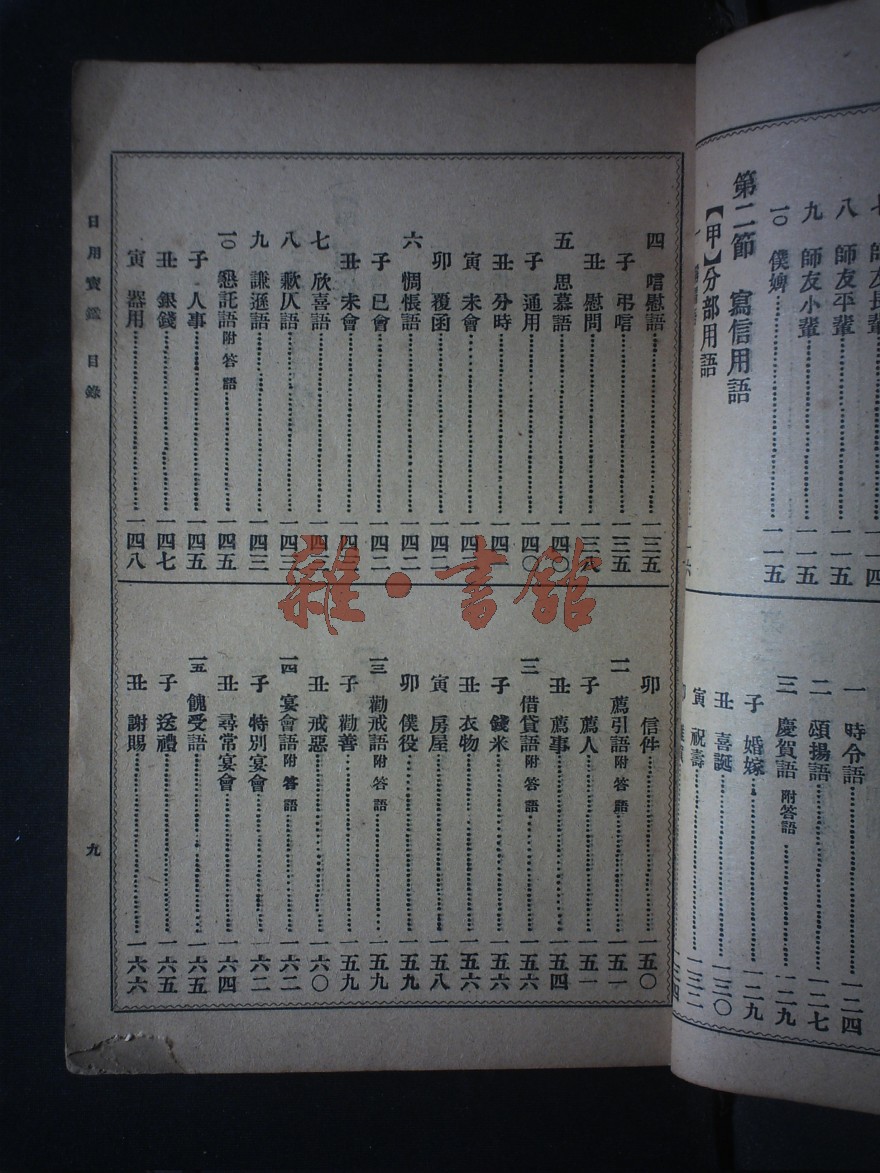 七 師友長輩……一一四
八 師友平輩……一一五
九 師友小輩……一一五
一〇 僕婢……一一五
第二節 寫信用語
【甲】分部用語
一 時令語……一二四
二 頌揚語……一二七
三 慶賀語 附答語……一二九
子 婚嫁……一二九
丑 喜誕……一三〇
寅 祝壽……一三二
四 唁慰語……一三五
子 弔唁……一三五
丑 慰問……一三八
五 思慕語……一四〇
子 通用……一四〇
丑 分時
寅 未會
卯 覆函……一四二
六 惆悵語……一四二
子 已會……一四二
丑 未會
七 欣喜語
八 歉仄語……一四三
九 謙遜語……一四三
一〇 懇託語 附答語……一四五
子 人事……一四五
丑 銀錢……一四七
寅 器用……一四八
卯 信件……一五〇
一一 薦引語 附答語……一五一
子 薦人……一五一
丑 薦事……一五四
一二 借貸語 附答語……一五六
子 錢米……一五六
丑 衣物……一五六
寅 房屋……一五八
卯 僕役……一五九
一三 勸戒語 附答語……一五九
子 勸善……一五九
丑 戒惡……一六〇
一四 宴會語 附答語……一六二
子 特別宴會……一六二
丑 尋常宴會……一六四
一五 餽受語……一六五
子 送禮……一六五
丑 謝賜……一六六
日用寶鑑 目錄
九
雜·書館